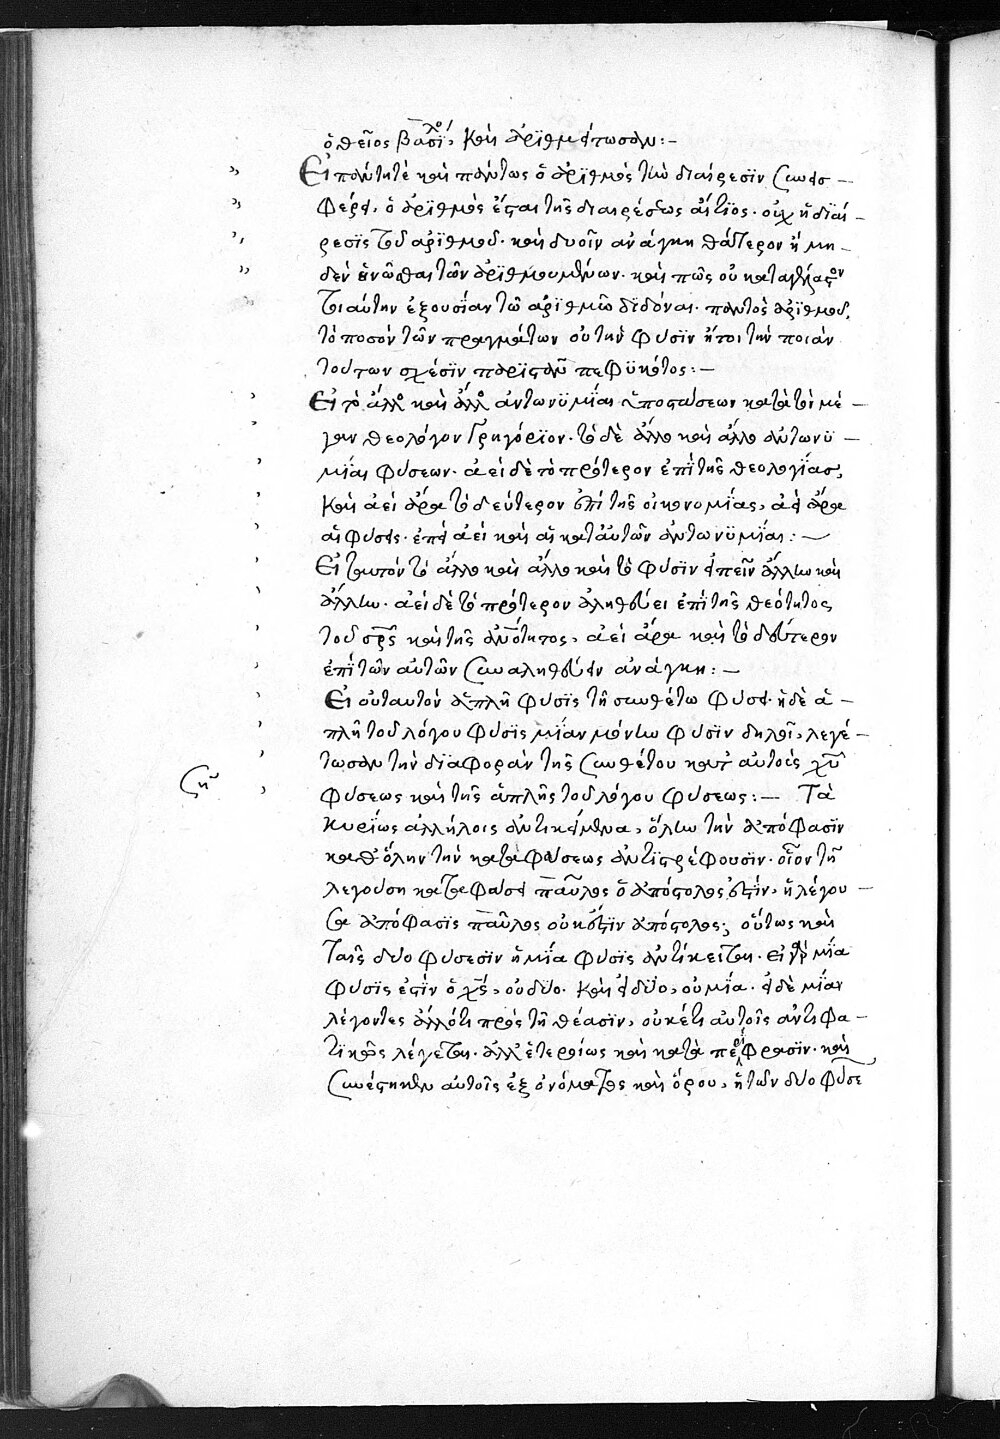 ὁ θεῖος βασίλ, καὶ ἀριθμείτωσαν:–
Εἰ πάντῃ τὲ καὶ πάντως ὁ ἀριθμὸς τὴν διαίρεσιν συνεισ–
φέρει, ὁ ἀριθμὸς ἔσται τῆς διαιρέσεως αἴτιος· οὐχ ἡ διαί–
ρεσις τοῦ ἀριθμοῦ· καὶ δυοῖν ἀνάγκη θάτερον ἢ μη–
δὲν ἡνῶσθαι τῶν ἀριθμουμένων· καὶ πῶς οὐ καταγέλαστον
τοιαύτην ἐξουσίαν τῶ ἀριθμῶ διδόναι· παντὸς ἀριθμοῦ,
τὸ ποσὸν τῶν πραγμάτων οὐ τὴν φύσιν ἤτοι τὴν ποιὰν
τούτων σχέσιν παριστᾶν πεφυκότος:–
Εἰ τὸ ἄλλος καὶ ἄλλος ἀντωνυμίαι ὑποστάσεων κατὰ τὸν μέ–
γαν θεολόγον Γρηγόριον· τὸ δὲ ἄλλο καὶ ἄλλο ἀντωνυ–
μίαι φύσεων· ἀεὶ δὲ τὸ πρότερον ἐπὶ τῆς θεολογίας,
καὶ ἀεὶ ἄρα τὸ δεύτερον ἐπὶ τῆς οἰκονομίας, ἀεὶ ἄρα
αἱ φύσεις· ἐπεὶ ἀεὶ καὶ αἱ κατ' αὐτῶν ἀντωνυμίαι:–
Εἰ ταυτὸν τὸ ἄλλο καὶ ἄλλο καὶ τὸ φύσιν εἰπεῖν ἄλλην καὶ
ἄλλην· ἀεὶ δὲ τὸ πρότερον ἀληθεύει ἐπὶ τῆς θεότητος
τοῦ σρς καὶ τῆς ἀνότητος, ἀεὶ ἄρα καὶ τὸ δεύτερον
ἐπὶ τῶν αὐτῶν συναληθεύειν ἀνάγκη:–
Εἰ οὐ ταυτὸν ἁπλῆ φύσις τῆ συνθέτω φύσει· ἡ δὲ ἁ–
πλῆ τοῦ λόγου φύσις μίαν μόνην φύσιν δηλοῖ, λεγέ–
τωσαν τὴν διαφορὰν τῆς συνθέτου κατ' αὐτοὺς χυ
φύσεως καὶ τῆς ἁπλῆς τοῦ λόγου φύσεως:– Τὰ
κυρίως ἀλλήλοις ἀντικείμενα, ὅλην τὴν ἀπόφασιν
καθ' ὅλην τὴν καταφάσεως ἀντιστρέφουσιν· οἷον τῆ
λεγούση καταφάσει παῦλος ὁ ἀπόστολος ἐστίν, ἡ λέγου–
σα ἀπόφασις παῦλος οὐκ ἔστιν ἀπόστολος; οὕτως καὶ
ταῖς δυο φύσεσιν ἡ μία φύσις ἀντίκειται· εἰ γὰρ μία
φύσις ἐστὶν ὁ χς, οὐ δύο· καὶ εἰ δύο, οὐ μία· εἰ δὲ μίαν
λέγοντες ἀλλότι πρὸς τῆ θέασιν, οὐκέτι αὐτοῖς ἀντιφα–
τικῶς λέγεται· ἀλλ' ἑτεροίως καὶ κατὰ περίφρασιν· καὶ
συνέστηκεν αὐτοῖς ἐξ ὀνόματος καὶ ὅρου, ἡ τῶν δυο φύσε
ση